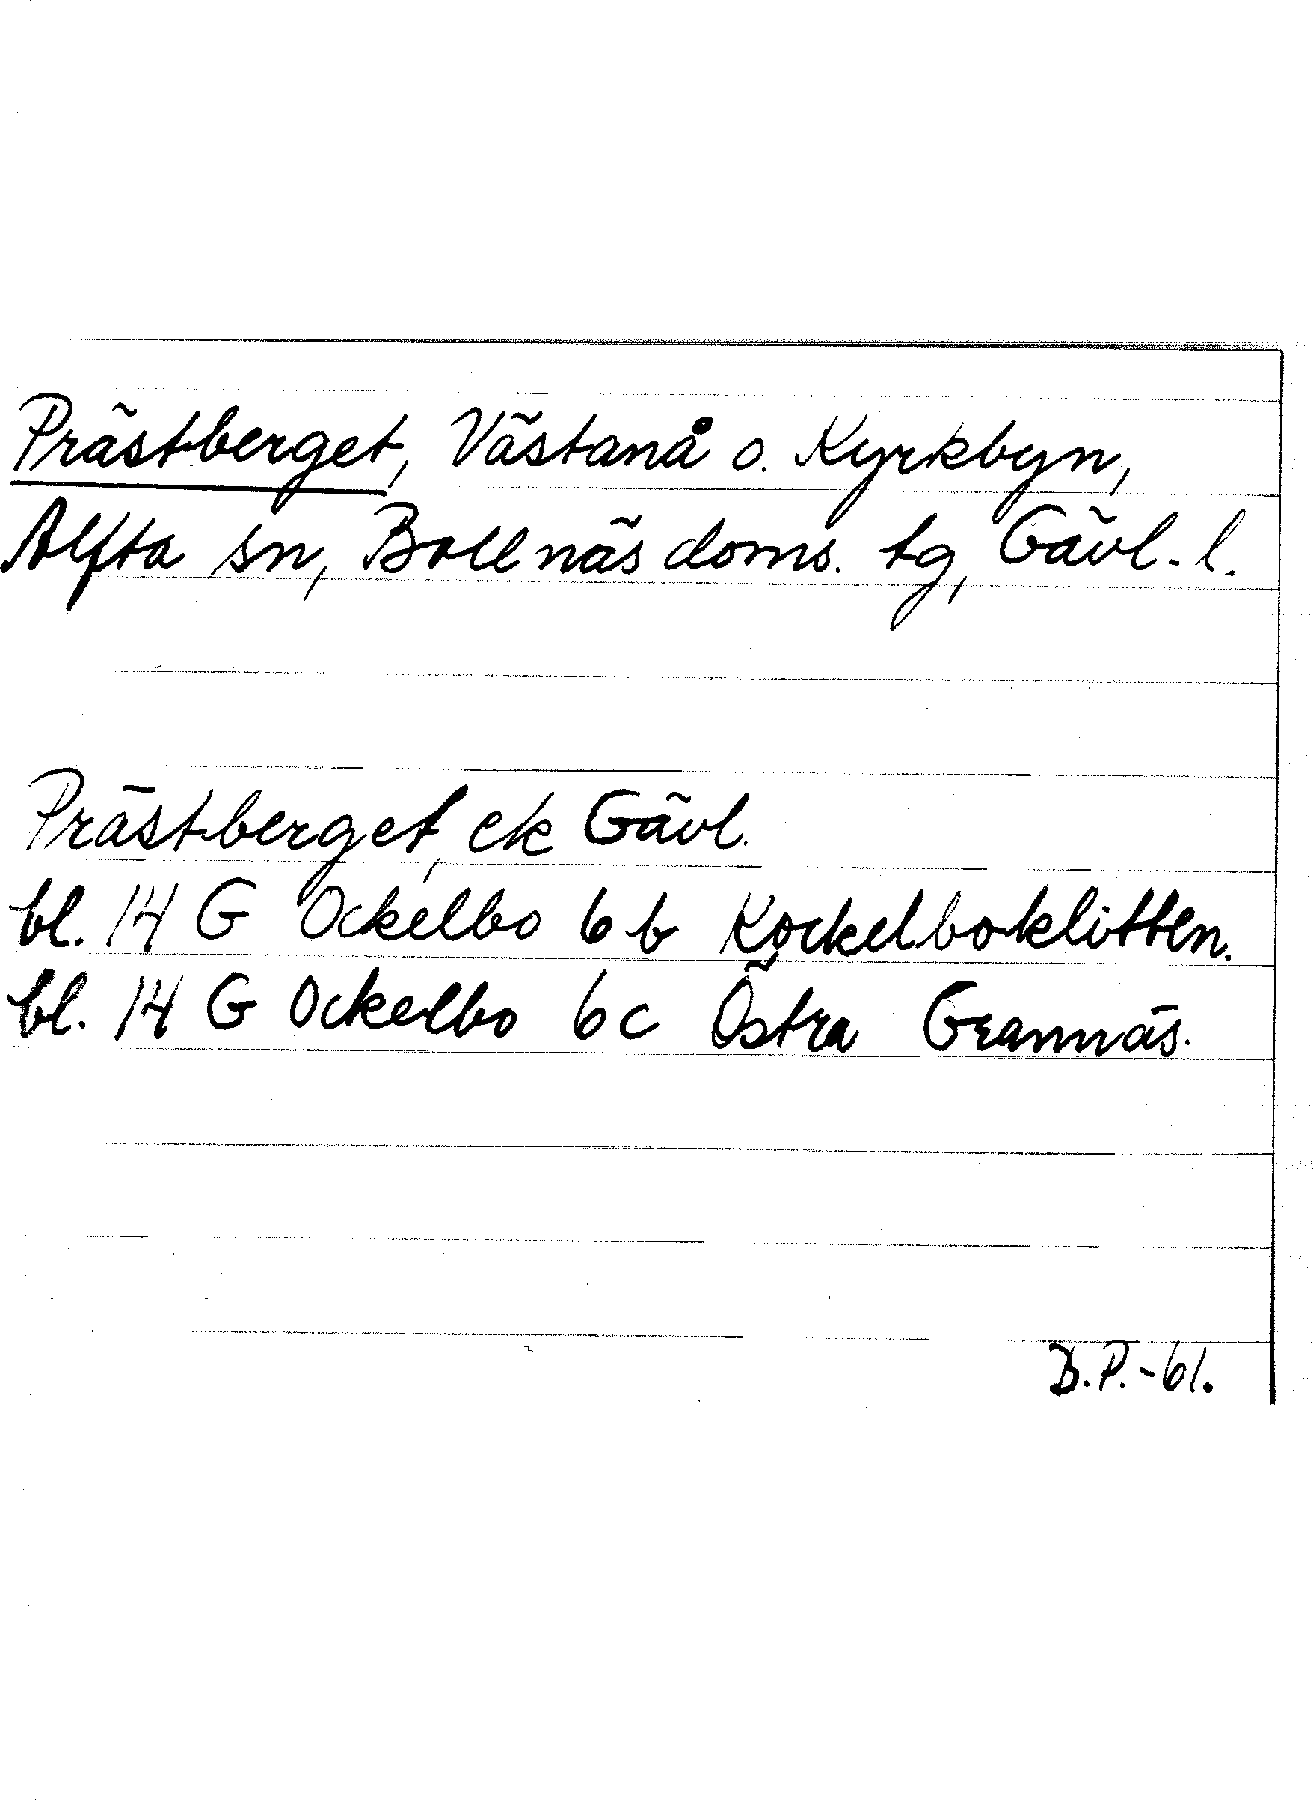 Prästberget, Västanå o. Kyrkbyn,
Alfta sn, Bollnäs doms. tg, Gävl. l.
Prästberget, ek Gävl.
bl. 14 G Ockelbo 6 b Kockelboklitten.
bl. 14 G Ockelbo 6 c Östra Grannäs.
B.P.-61.